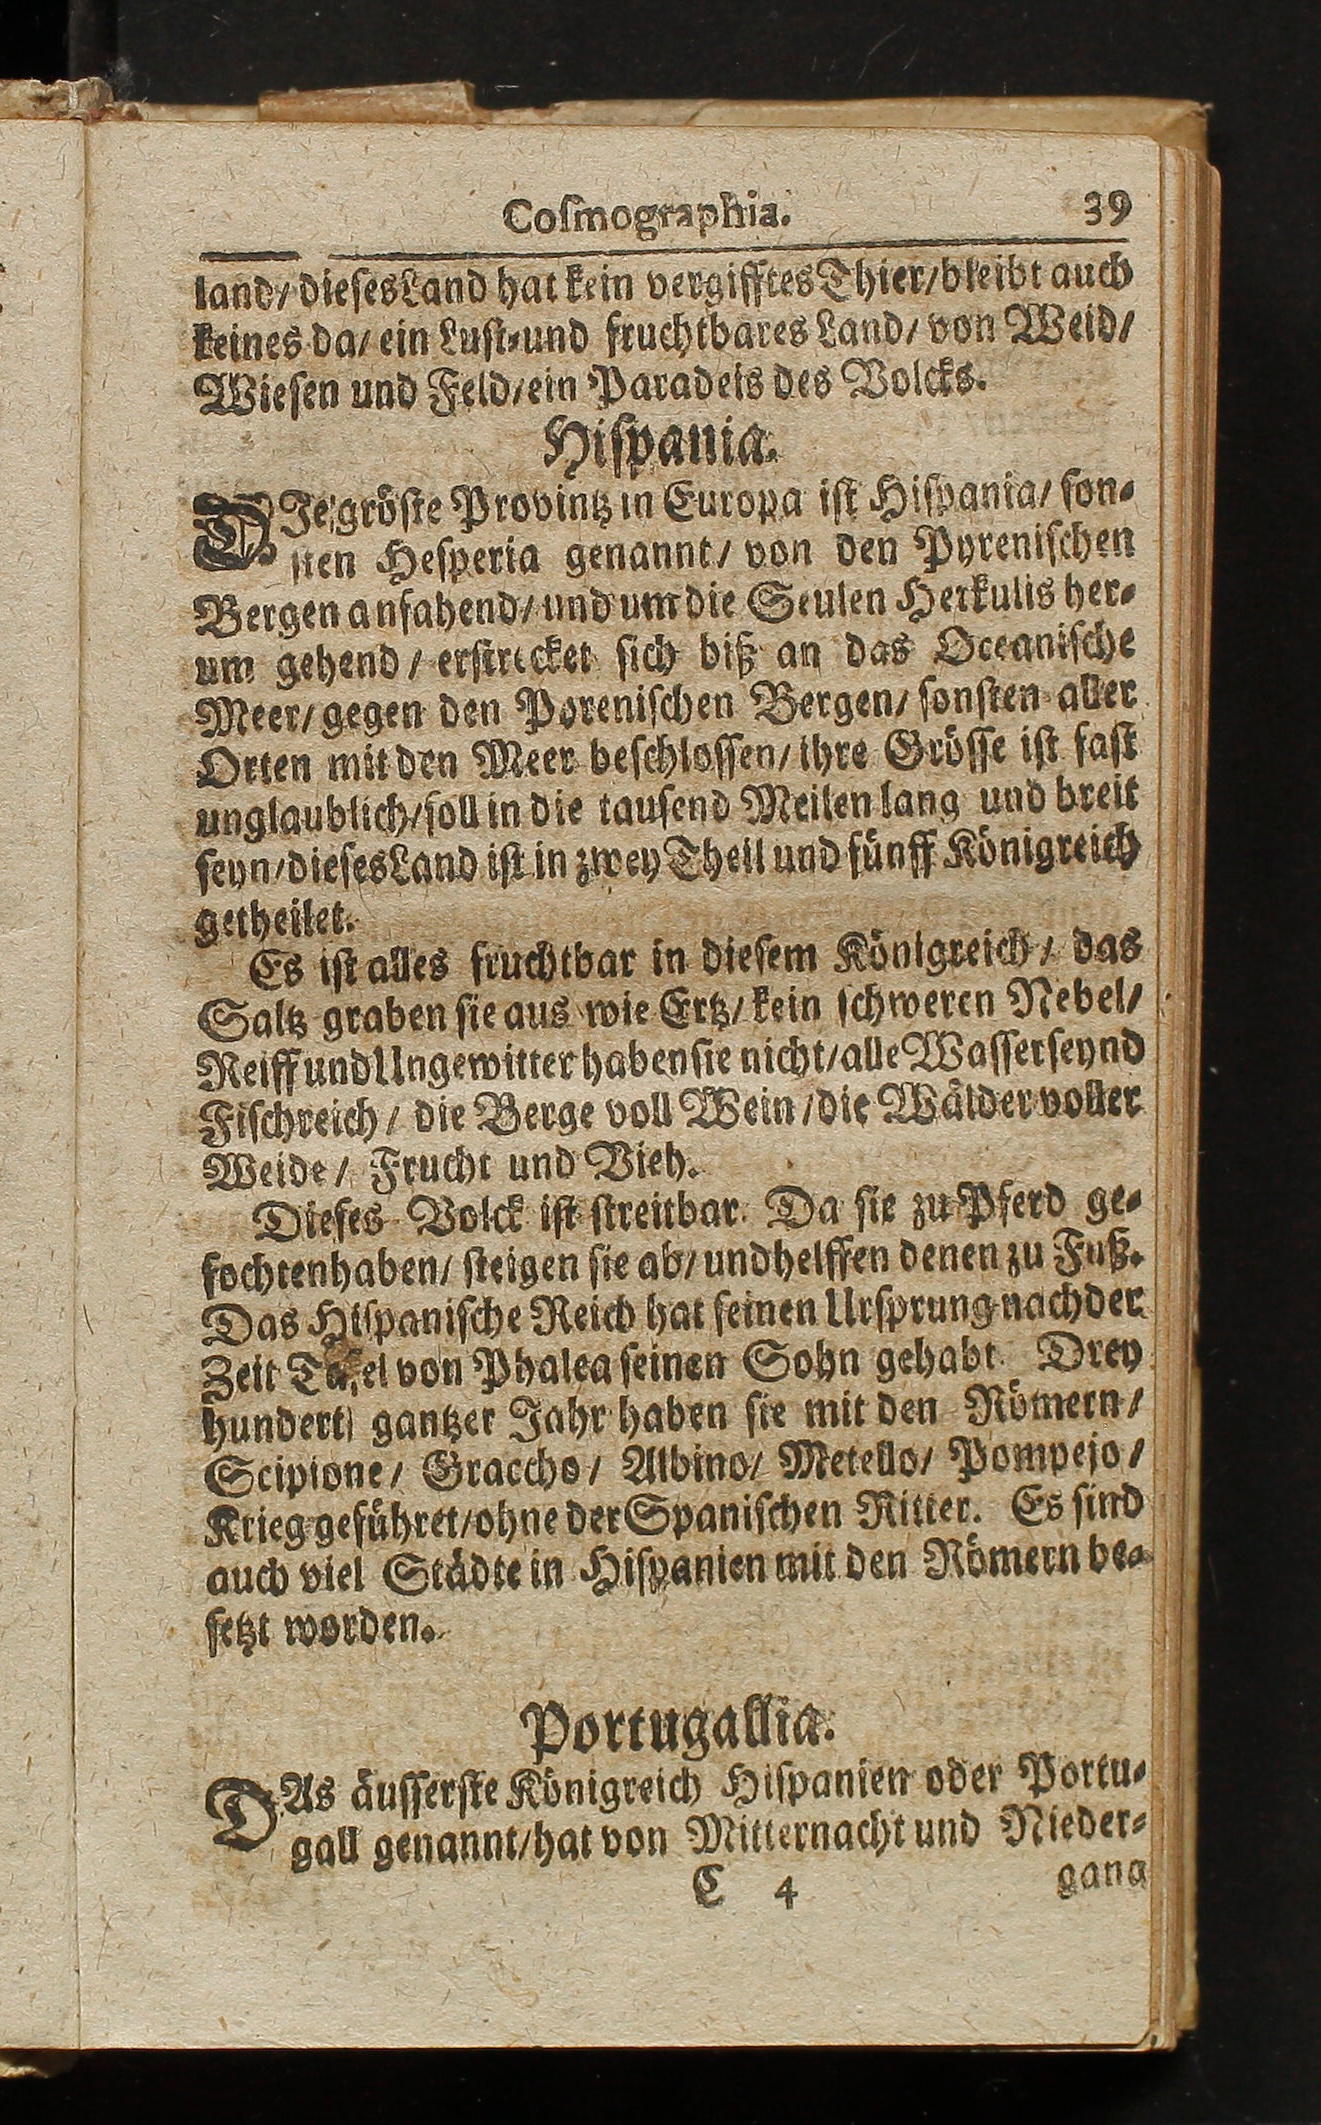 Cosmographia. 39
land/ dieses Land hat kein vergifftes Thier/ bleibt auch
keines da/ ein Lust-und fruchtbares Land/ von Weid/
Wiesen und Feld/ ein Paradeis des Volcks.
Hispania.
DJe gröste Provintz in Europa ist Hispania/ son-
sten Hesperia genannt/ von den Pyrenischen
Bergen anfahend/ und um die Seulen Herkulis her-
um gehend/ erstrecket sich biß an das Oceanische
Meer/ gegen den Pyrenischen Bergen/ sonsten aller
Orten mit den Meer beschlossen/ ihre Grösse ist fast
unglaublich/ soll in die tausend Meilen lang und breit
seyn/ dieses Land ist in zwey Theil und fünff Königreich
getheilet.
Es ist alles fruchtbar in diesem Königreich/ das
Saltz graben sie aus wie Ertz/ kein schweren Nebel/
Reiff und Ungewitter haben sie nicht/ alle Wasser seynd
Fischreich/ die Berge voll Wein/ die Wälder voller
Weide/ Frucht und Vieh.
Dieses Volck ist streitbar. Da sie zu Pferd ge-
fochten haben/ steigen sie ab/ und helffen denen zu Fuß.
Das Hispanische Reich hat seinen Ursprung nach der
Zeit von Phalea seinen Sohn gehabt. Drey
hundert gantzer Jahr haben sie mit den Römern/
Scipione/ Graccho/ Albino/ Metello/ Pompejo/
Krieg geführet/ ohne der Spanischen Ritter. Es sind
auch viel Städte in Hispanien mit den Römern be-
setzt worden.
Portugallia.
DAs äusserste Königreich Hispanien oder Portu-
gall genannt/ hat von Mitternacht und Nieder-
C 4 gang